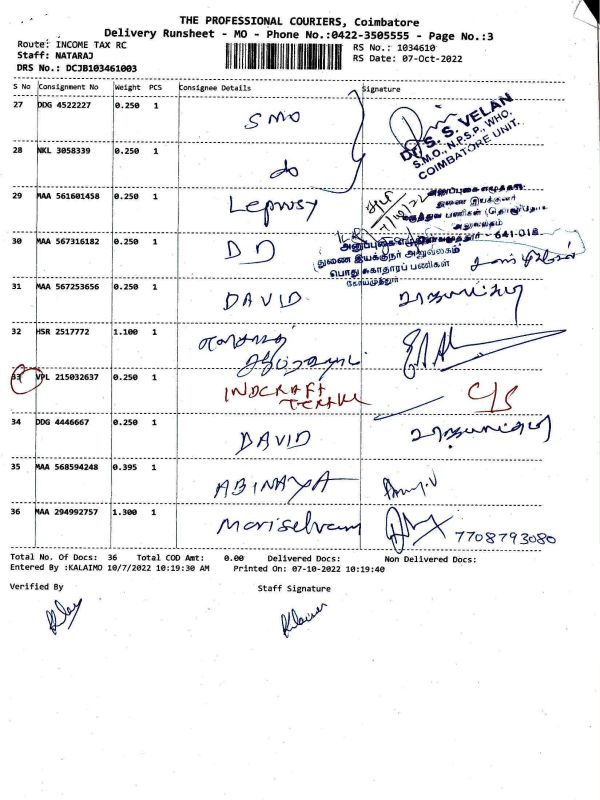 THE PROFESSIONAL COURIERS, Coimbatore
Delivery Runsheet - MO - Phone No.:0422-3505555 - Page No.:3
Route: INCOME TAX RC
RS No.: 1034610
Staff: NATARAJ
RS Date: 07-Oct-2022
DRS No.: DCJB103461003
S No Consignment No Weight PCS Consignee Details Signature
27 DDG 4522227 0.250 1 SMO
Dr. S. S. VELAN
S.M.O., N.P.S.P., WHO.
COIMBATORE UNIT.
28 NKL 3058339 0.250 1 do
29 MAA 561601458 0.250 1 Leprosy
அனுப்புகை எழுத்தர்
துணை இயக்குனர்
மருத்துவ பணிகள்
அலுவலகம்
641-018
30 MAA 567316182 0.250 1 DD
துணை இயக்குநர் அலுவலகம்
பொது சுகாதாரப் பணிகள்
கோயமுத்தூர்
31 MAA 567253656 0.250 1 DAVID
32 HSR 2517772 1.100 1
33 VPL 215032637 0.250 1 INDCRAFT
34 DDG 4446667 0.250 1 DAVID
35 MAA 568594248 0.395 1 ABINAYA
36 MAA 294992757 1.300 1 Mariselvam 7708793080
Total No. Of Docs: 36 Total COD Amt: 0.00 Delivered Docs: Non Delivered Docs:
Entered By :KALAIMO 10/7/2022 10:19:30 AM Printed On: 07-10-2022 10:19:40
Verified By Staff Signature